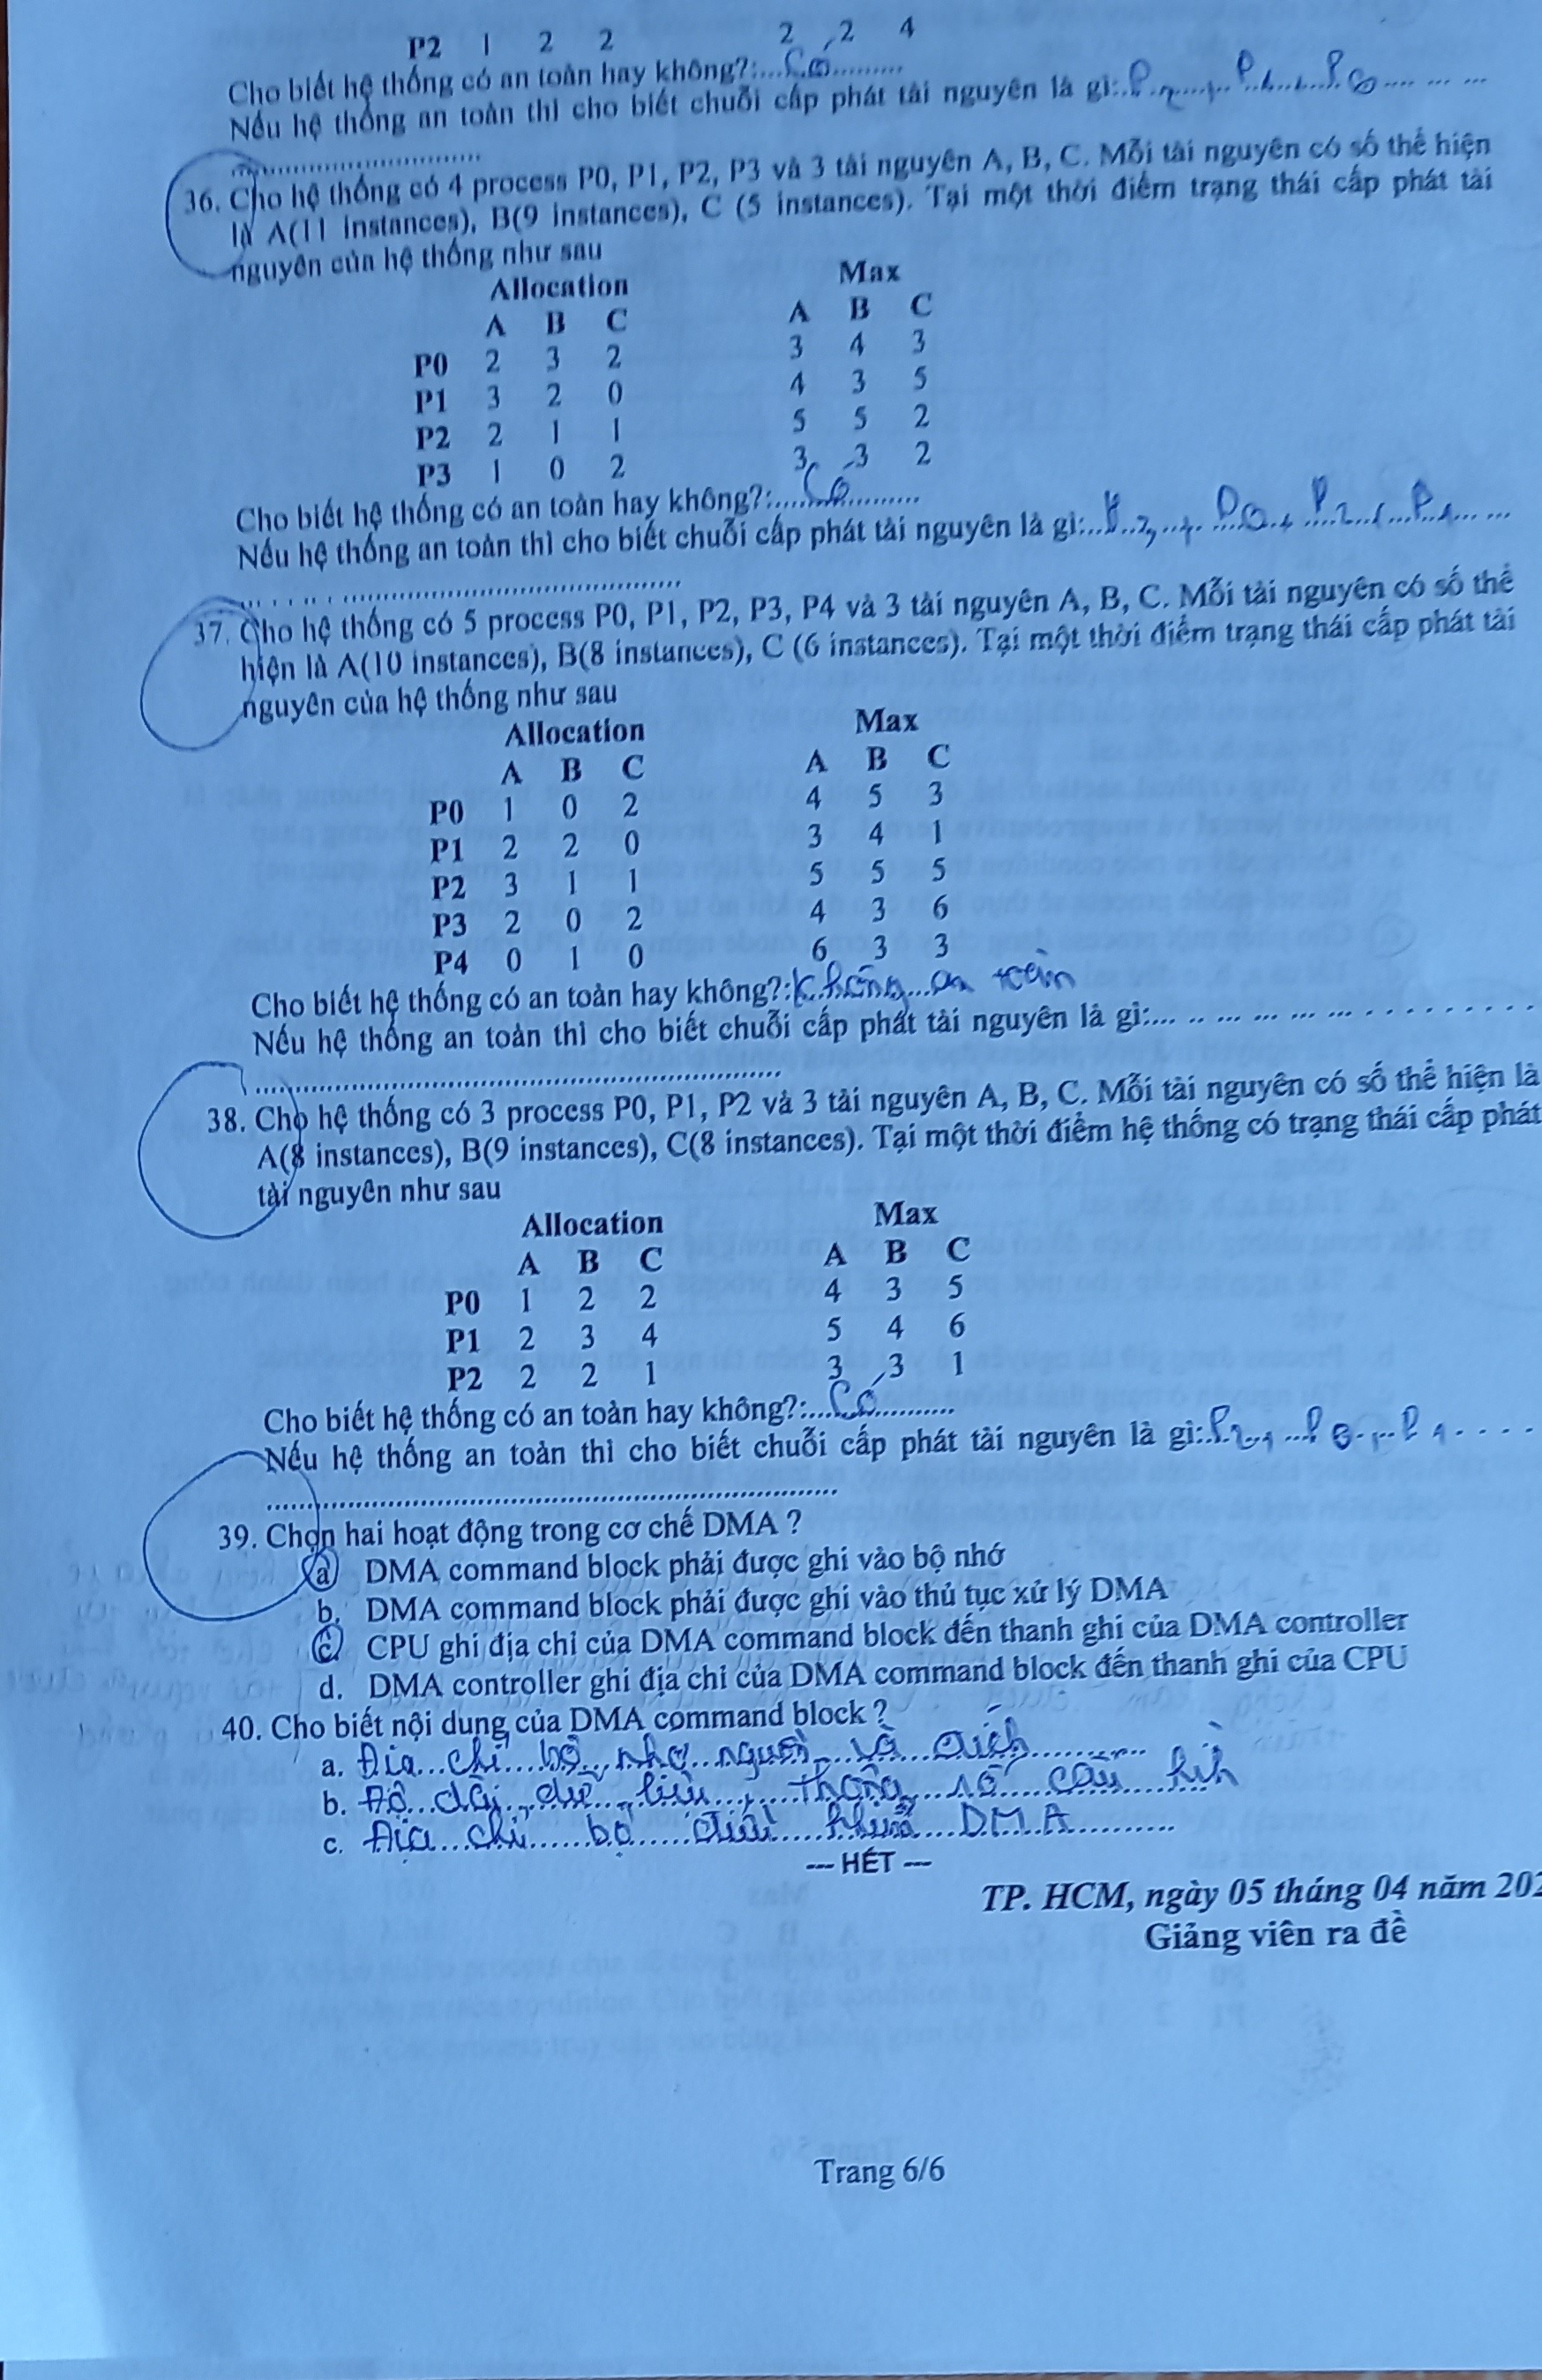 P2 1 2 2 2 2 4
Cho biết hệ thống có an toàn hay không?:....Có..........
Nếu hệ thống an toàn thì cho biết chuỗi cấp phát tài nguyên là gì:..P2, P1, P0.... ... ...
36. Cho hệ thống có 4 process P0, P1, P2, P3 và 3 tài nguyên A, B, C. Mỗi tài nguyên có số thể hiện
là A(11 instances), B(9 instances), C (5 instances). Tại một thời điểm trạng thái cấp phát tài
nguyên của hệ thống như sau
Allocation Max
A B C A B C
P0 2 3 2 3 4 3
P1 3 2 0 4 3 5
P2 2 1 1 5 5 2
P3 1 0 2 3 3 2
Cho biết hệ thống có an toàn hay không?:....Có..........
Nếu hệ thống an toàn thì cho biết chuỗi cấp phát tài nguyên là gì:...P3, P0, P2, P1... ...
37. Cho hệ thống có 5 process P0, P1, P2, P3, P4 và 3 tài nguyên A, B, C. Mỗi tài nguyên có số thể
hiện là A(10 instances), B(8 instances), C (6 instances). Tại một thời điểm trạng thái cấp phát tài
nguyên của hệ thống như sau
Allocation Max
A B C A B C
P0 1 0 2 4 5 3
P1 2 2 0 3 4 1
P2 3 1 1 5 5 5
P3 2 0 2 4 3 6
P4 0 1 0 6 3 3
Cho biết hệ thống có an toàn hay không?:Không an toàn
Nếu hệ thống an toàn thì cho biết chuỗi cấp phát tài nguyên là gì:... .. ... ... ... ... . . . . . . . . .
38. Cho hệ thống có 3 process P0, P1, P2 và 3 tài nguyên A, B, C. Mỗi tài nguyên có số thể hiện là
A(8 instances), B(9 instances), C(8 instances). Tại một thời điểm hệ thống có trạng thái cấp phát
tài nguyên như sau
Allocation Max
A B C A B C
P0 1 2 2 4 3 5
P1 2 3 4 5 4 6
P2 2 2 1 3 3 1
Cho biết hệ thống có an toàn hay không?:....Có..........
Nếu hệ thống an toàn thì cho biết chuỗi cấp phát tài nguyên là gì:..P2, P0, P1 . . . .
39. Chọn hai hoạt động trong cơ chế DMA ?
a. DMA command block phải được ghi vào bộ nhớ
b. DMA command block phải được ghi vào thủ tục xử lý DMA
c. CPU ghi địa chỉ của DMA command block đến thanh ghi của DMA controller
d. DMA controller ghi địa chỉ của DMA command block đến thanh ghi của CPU
40. Cho biết nội dung của DMA command block ?
a. Địa chỉ bộ nhớ nguồn và đích
b. Độ dài dữ liệu, thông số cấu hình
c. Địa chỉ bộ điều khiển DMA
--- HẾT ---
TP. HCM, ngày 05 tháng 04 năm 202
Giảng viên ra đề
Trang 6/6